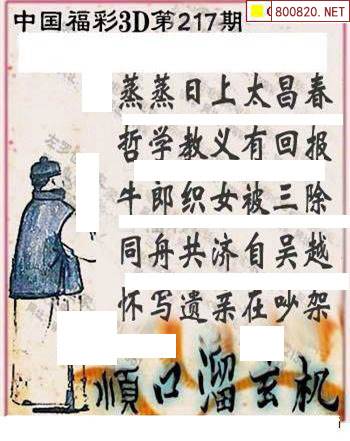 800820.NET
中国福彩3D第217期
蒸蒸日上太昌春
哲学教义有回报
牛郎织女被三除
同舟共济自吴越
怀写遗亲在吵架
顺口溜玄机